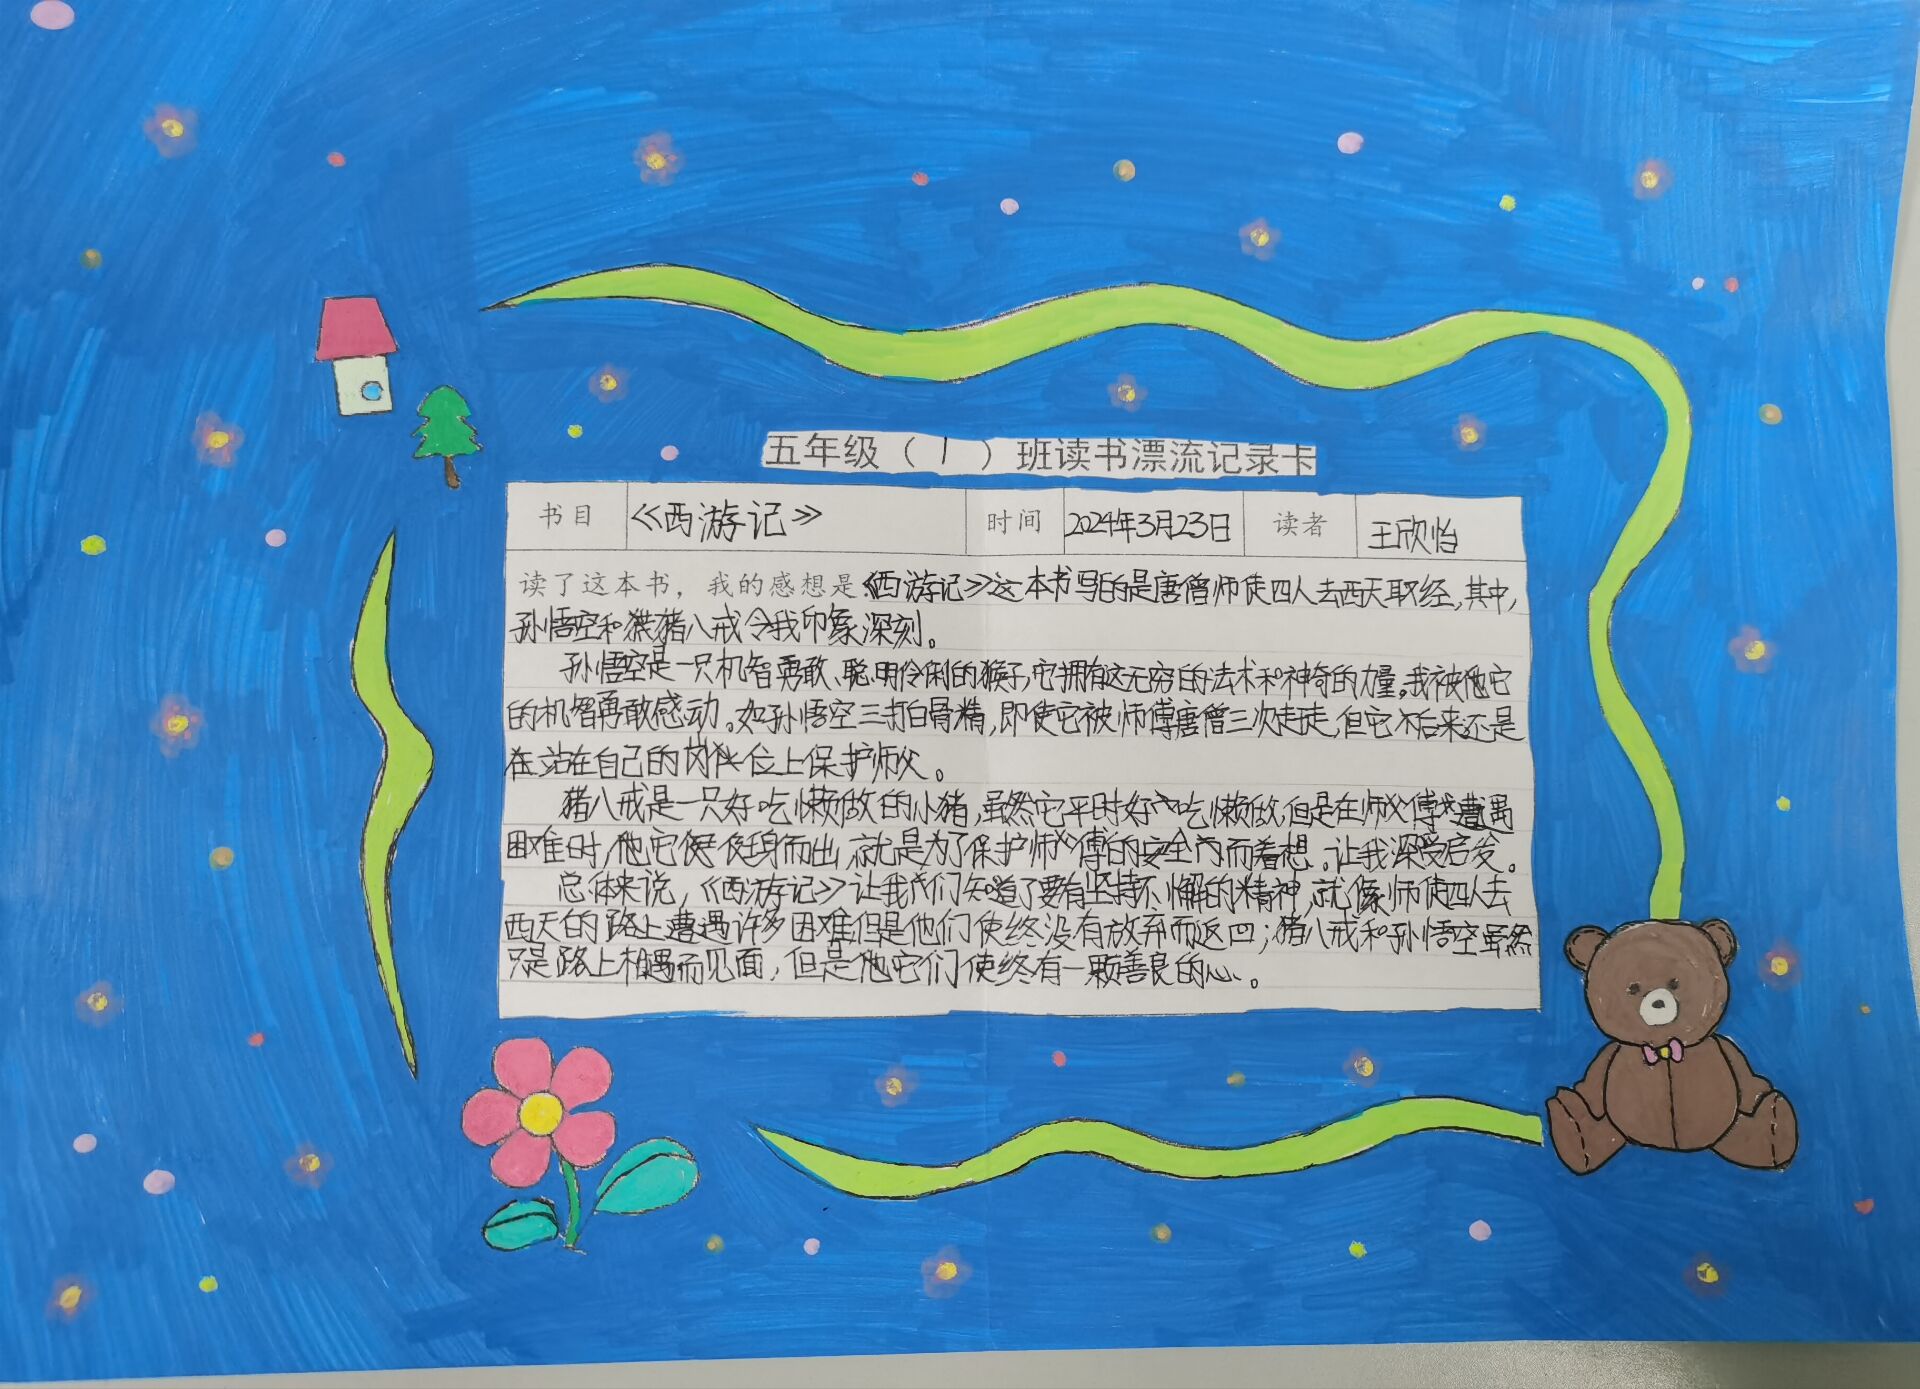 五年级（1）班读书漂流记录卡
书目 《西游记》 时间 2024年3月23日 读者 王欣怡
读了这本书，我的感想是:《西游记》这本书写的是唐僧师徒四人去西天取经,其中,
孙悟空和猪八戒令我印象深刻。
孙悟空是一只机智勇敢、聪明伶俐的猴子,它拥有这无穷的法术和神奇的力量。我被它
的机智勇敢感动。如孙悟空三打白骨精,即使它被师傅唐僧三次走,但它后来还是
站在自己的位上保护师父。
猪八戒是一只好吃懒做的小猪,虽然它平时好吃懒做,但是在师傅遭遇
困难时,它挺身而出,就是为了保护师傅的安全而着想。让我深受启发。
总体来说,《西游记》让我们知道了要有坚持不懈的精神,就像师徒四人去
西天的路上遭遇许多困难但是他们使终没有放弃而返回;猪八戒和孙悟空虽然
只是路上相遇而见面,但是它们使终有一颗善良的心。